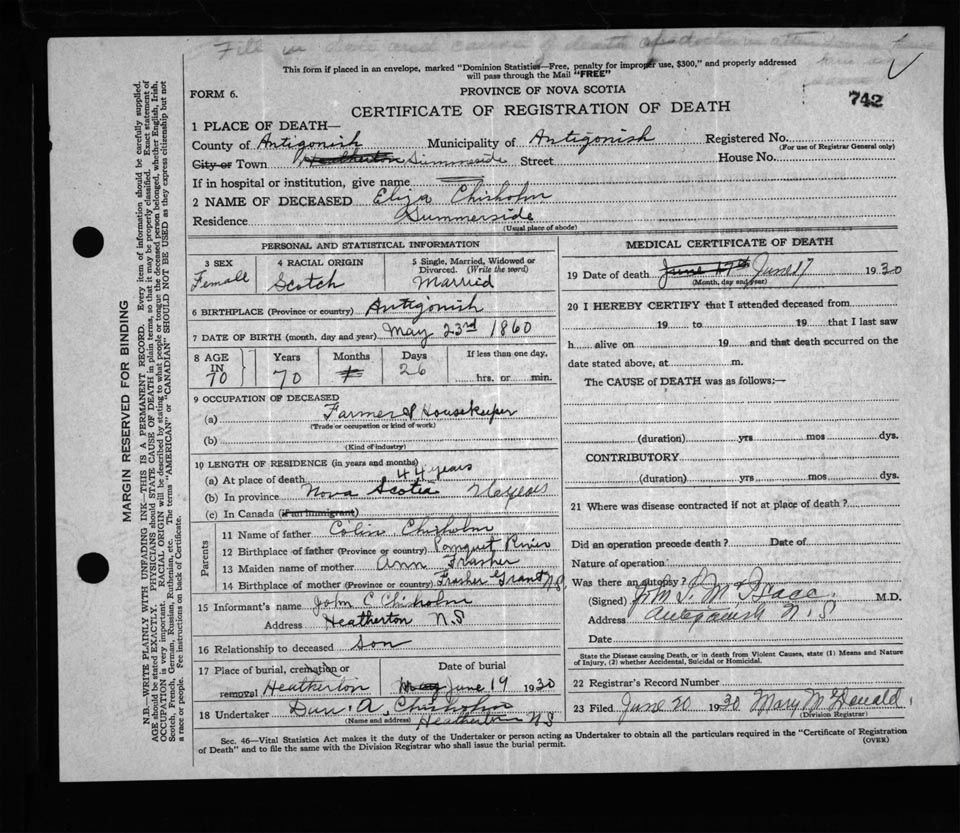 Fill in date and cause of death
This form if placed in an envelope, marked "Dominion Statistics—Free, penalty for improper use, $300," and properly addressed
will pass through the Mail "FREE"
FORM 6.
PROVINCE OF NOVA SCOTIA
742
CERTIFICATE OF REGISTRATION OF DEATH
1 PLACE OF DEATH—
County of Antigonish Municipality of Antigonish Registered No.
(For use of Registrar General only)
City or Town Heatherton Summerside Street House No.
If in hospital or institution, give name
2 NAME OF DECEASED Eliza Chisholm
Residence Summerside
(Usual place of abode)
PERSONAL AND STATISTICAL INFORMATION
3 SEX
Female
4 RACIAL ORIGIN
Scotch
5 Single, Married, Widowed or
Divorced. (Write the word)
Married
6 BIRTHPLACE (Province or country) Antigonish
7 DATE OF BIRTH (month, day and year) May 23rd 1860
8 AGE
IN
70
Years
70
Months
1
Days
26
If less than one day,
hrs. or min.
9 OCCUPATION OF DECEASED
(a) Farmer & Housekeeper
(Trade or occupation or kind of work)
(b)
(Kind of industry)
10 LENGTH OF RESIDENCE (in years and months)
(a) At place of death 44 years
(b) In province Nova Scotia years
(c) In Canada (if an immigrant)
Parents
11 Name of father Colin Chisholm
12 Birthplace of father (Province or country) Pomquet River
13 Maiden name of mother Ann Frasher
14 Birthplace of mother (Province or country) Frasher Grant N.S.
15 Informant's name John C Chisholm
Address Heatherton N.S
16 Relationship to deceased Son
17 Place of burial, cremation or
removal Heatherton
Date of burial
May June 19 1930
18 Undertaker Dun. A. Chisholm
(Name and address) Heatherton N S
MEDICAL CERTIFICATE OF DEATH
19 Date of death June 17th June 17 1930
(Month, day and year)
20 I HEREBY CERTIFY that I attended deceased from
19 to 19 that I last saw
h alive on 19 and that death occurred on the
date stated above, at m.
The CAUSE of DEATH was as follows:—
(duration) yrs mos dys.
CONTRIBUTORY
(duration) yrs mos dys.
21 Where was disease contracted if not at place of death?
Did an operation precede death? Date of
Nature of operation
Was there an autopsy?
(Signed) M.D.
Address Antigonish N.S
Date
State the Disease causing Death, or in death from Violent Causes, state (1) Means and Nature
of Injury, (2) whether Accidental, Suicidal or Homicidal.
22 Registrar's Record Number
23 Filed June 20 1930 Mary McDonald
(Division Registrar)
Sec. 46—Vital Statistics Act makes it the duty of the Undertaker or person acting as Undertaker to obtain all the particulars required in the "Certificate of Registration
of Death" and to file the same with the Division Registrar who shall issue the burial permit.
(OVER)
MARGIN RESERVED FOR BINDING
N.B.—WRITE PLAINLY WITH UNFADING INK—THIS IS A PERMANENT RECORD. Every item of information should be carefully supplied.
AGE should be stated EXACTLY. PHYSICIANS should STATE CAUSE OF DEATH in plain terms, so that it may be properly classified. Exact statement of
OCCUPATION is very important. RACIAL ORIGIN will be described by stating to what people or tongue the deceased person belonged, whether English, Irish,
Scotch, French, German, Russian, Ruthenian, etc. The terms "AMERICAN" or "CANADIAN" SHOULD NOT BE USED as they express citizenship but not
a race or people. Fee instructions on back of Certificate.